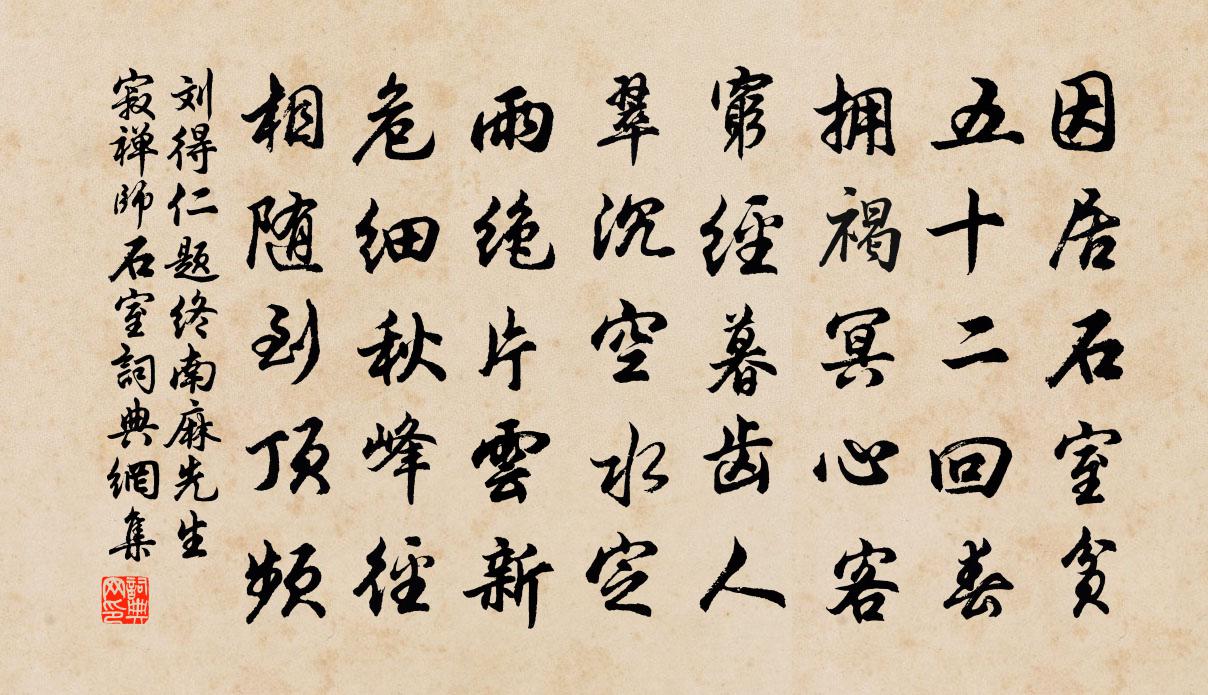 因居石室贫
五十二回春
拥褐冥心客
窮經暮齿人
翠沉空水定
雨绝片雲新
危细秋峰径
相随到顶频
刘得仁题终南麻先生
寂禅師石室詞典網集
詞典网印